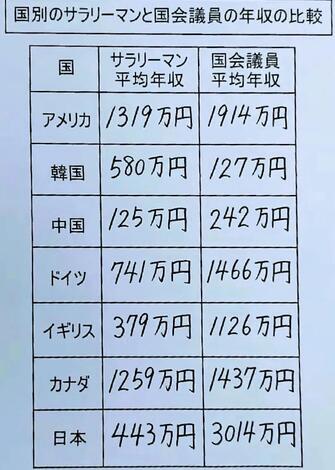 国別のサラリーマンと国会議員の年収の比較
国 サラリーマン平均年収 国会議員平均年収
アメリカ 1319万円 1914万円
韓国 580万円 127万円
中国 125万円 242万円
ドイツ 741万円 1466万円
イギリス 379万円 1126万円
カナダ 1259万円 1437万円
日本 443万円 3014万円